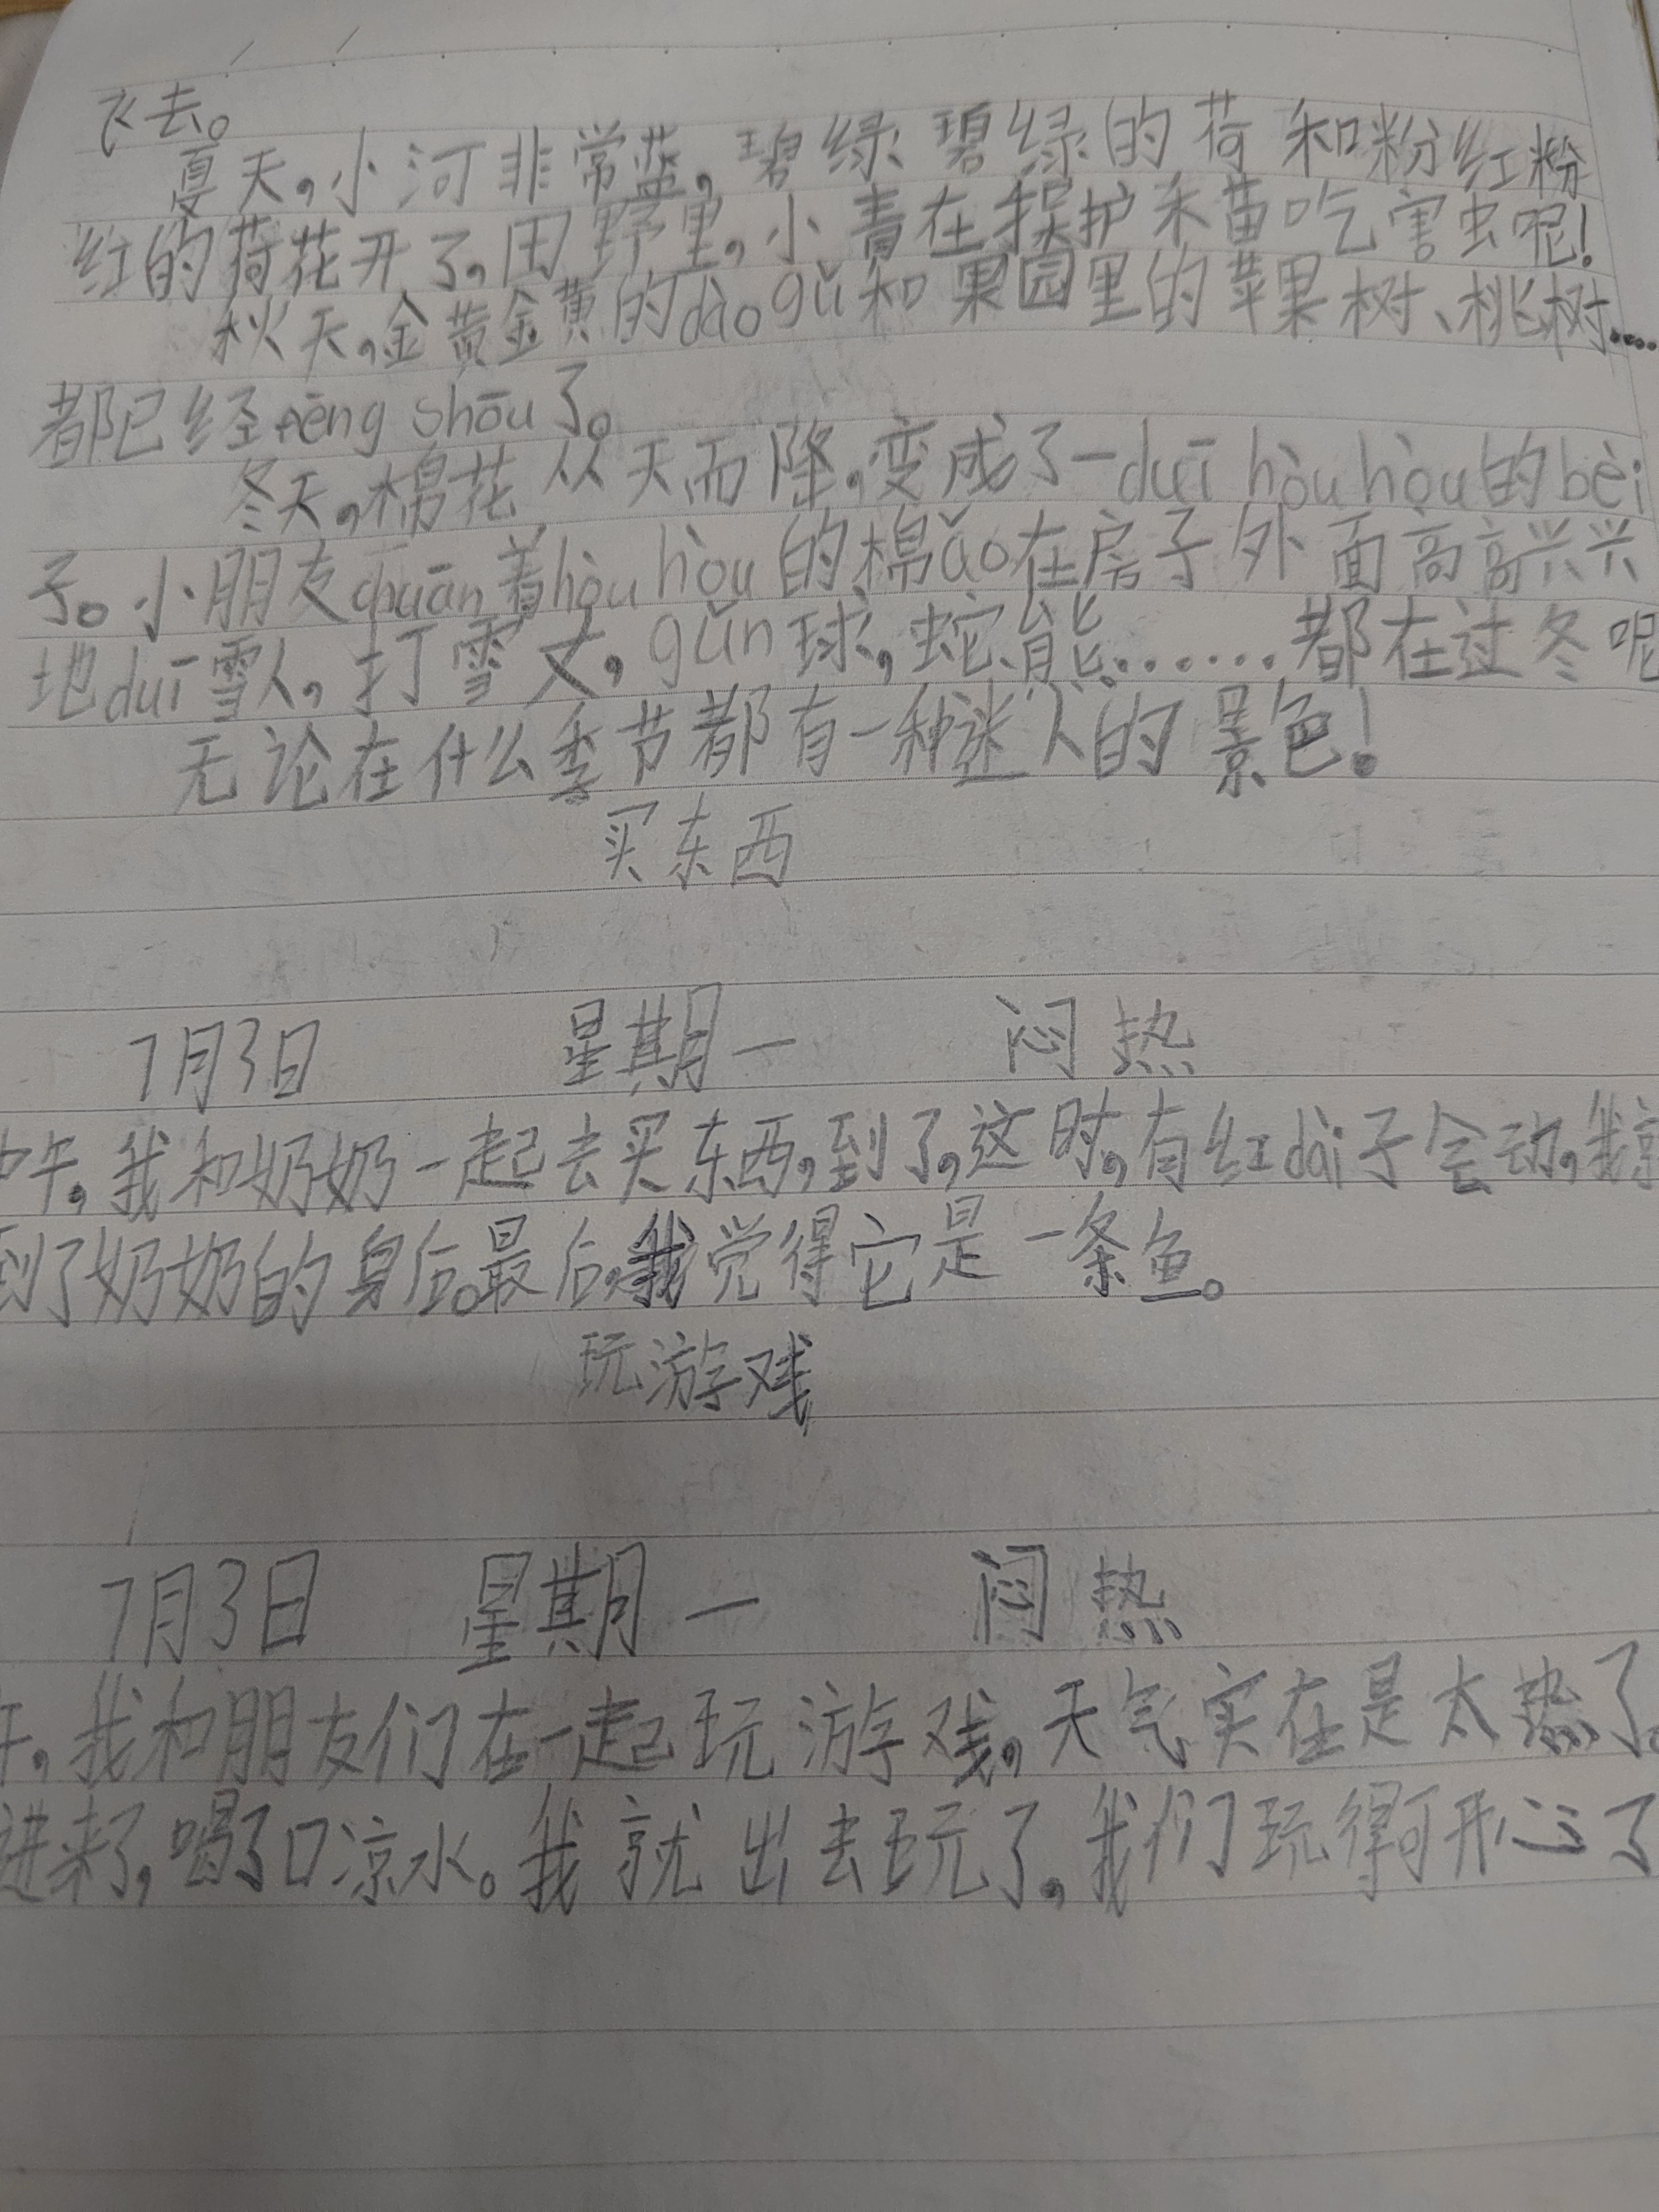 飞去。
夏天,小河非常蓝,碧绿碧绿的荷和粉红粉
红的荷花开了,田野里,小青在保护禾苗吃害虫呢!
秋天,金黄金黄的dào gǔ和果园里的苹果树、桃树……
都已经fēng shōu了。
冬天,棉花从天而降,变成了一duī hòu hòu的bèi
子。小朋友chuān着hòu hòu的棉ǎo在房子外面高高兴兴
地duī雪人,打雪丈,gǔn球,蛇、能……都在过冬呢
无论在什么季节都有一种谜人的景色!
买东西
7月3日 星期一 闷热
中午,我和奶奶一起去买东西,到了,这时,有红dài子会动,我
到了奶奶的身后。最后,我觉得它是一条鱼。
玩游戏
7月3日 星期一 闷热
午,我和朋友们在一起玩游戏,天气实在是太热了。
进来了,喝了口凉水。我就出去玩了,我们玩得可开心了